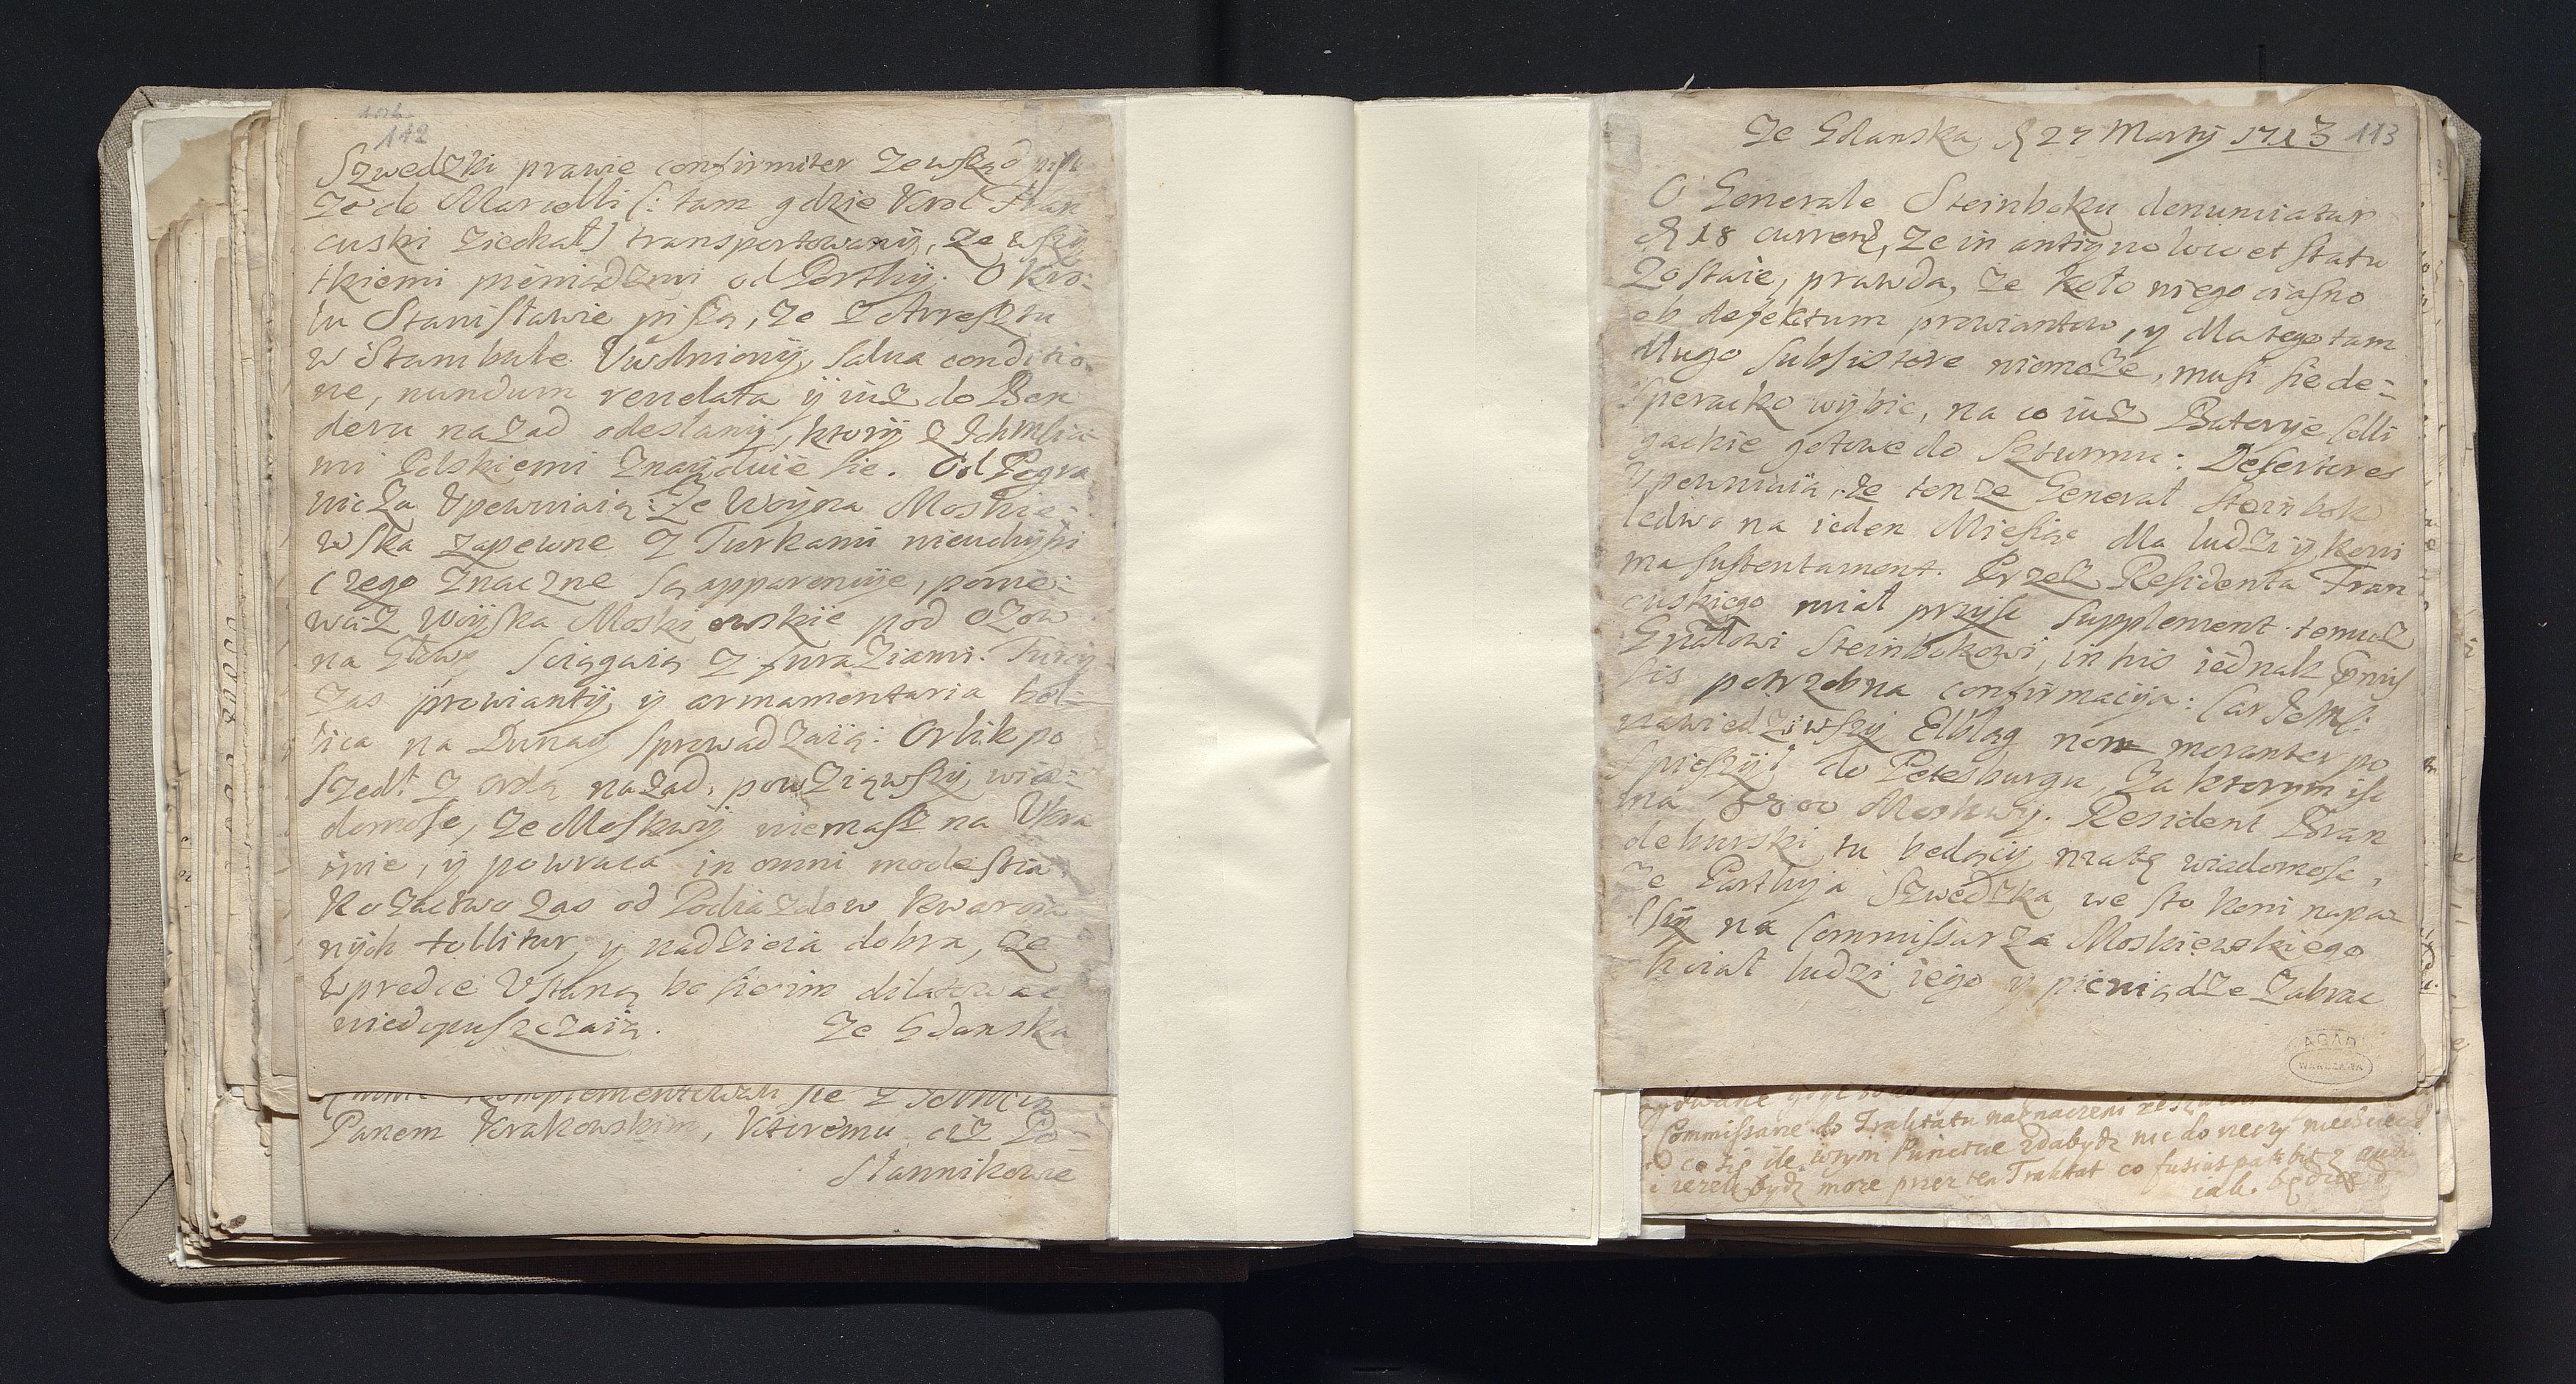 142
Szwedzki prawie confirmiter zewsząd
że do Marsilli (: tam gdzie Krol Fran
cuski ziechał) transportowany, ze wszy
tkiemi pieniądzmi od Porthy. O Kro-
lu Stanisławie piszą, że z Arresztu
w Stambule Uwolniony, salva conditio
ne, nundum revelata y iuż do Ben
deru nazad odesłany, ktory z Ichmścia
mi Polskiemi znayduie sie. Od Pogra
nicza Upewniaią: Ze Woyna Moskie-
wska zapewne z Turkami nieuchybi
czego znaczne są apparencye, ponie-
waż Woyska Moskiewskie pod Ozow
na Głowę sciągaią z furaziami. Turcy
zas prowianty y armamentaria bel-
lica na Dunay sprowadzaią: Orlik po
szedł z ordą nazad, powziąwszy wia-
domosc, że Moskwy niemasz na Ukra
inie, y powraca in omni modestia
Kozactwo zas od Podiazdow Kwarcia
nych tollitur, y nadzieia dobra, że
wpredce Ustaną bo sie im dilatowac
niedopuszczaią. Ze Gdanska
komplementował sie z Jchmcią
Panem Krakowskim, Ktoremu ciż Po-
słannikowie
Ze Gdanska d 27 Martij 1713 113
O Generale Steinboku denunciatur
d 18 current, że in antiquo loco et statu
zostaie, prawda, że koło niego ciasno
ob defektum prowiantow, y dla tego tam
dlugo subsistere niemoże, musi sie de-
speracko wybic, na co iuż Baterye Colli
gackie gotowe do szturmu: Desertores
Upewniaią, że tenże Generał Steinbok
ledwo na ieden Miesiąc dla ludzi y koni
ma sustentament. Przez Residenta Fran
cuskiego miał przyść supplement temuż
Gnałowi Steinbokowi, in his iednak pmis
sis potrzebna confirmacya: Car Jemść
nawiedziwszy Elbląg non moranter po
spieszył do Petesburgu, za ktorym isc
ma 8000 Moskwy. Resident Bran
deburski tu będący ma tę wiadomosc,
że Parthyja Szwedzka we sto koni napad
szy na Commissarza Moskiewskiego
kciał ludzi iego y pieniądze zabrac
AGAD
WARSZAWA
Commissarze do Traktatu naznaczeni
co fusius patebit z